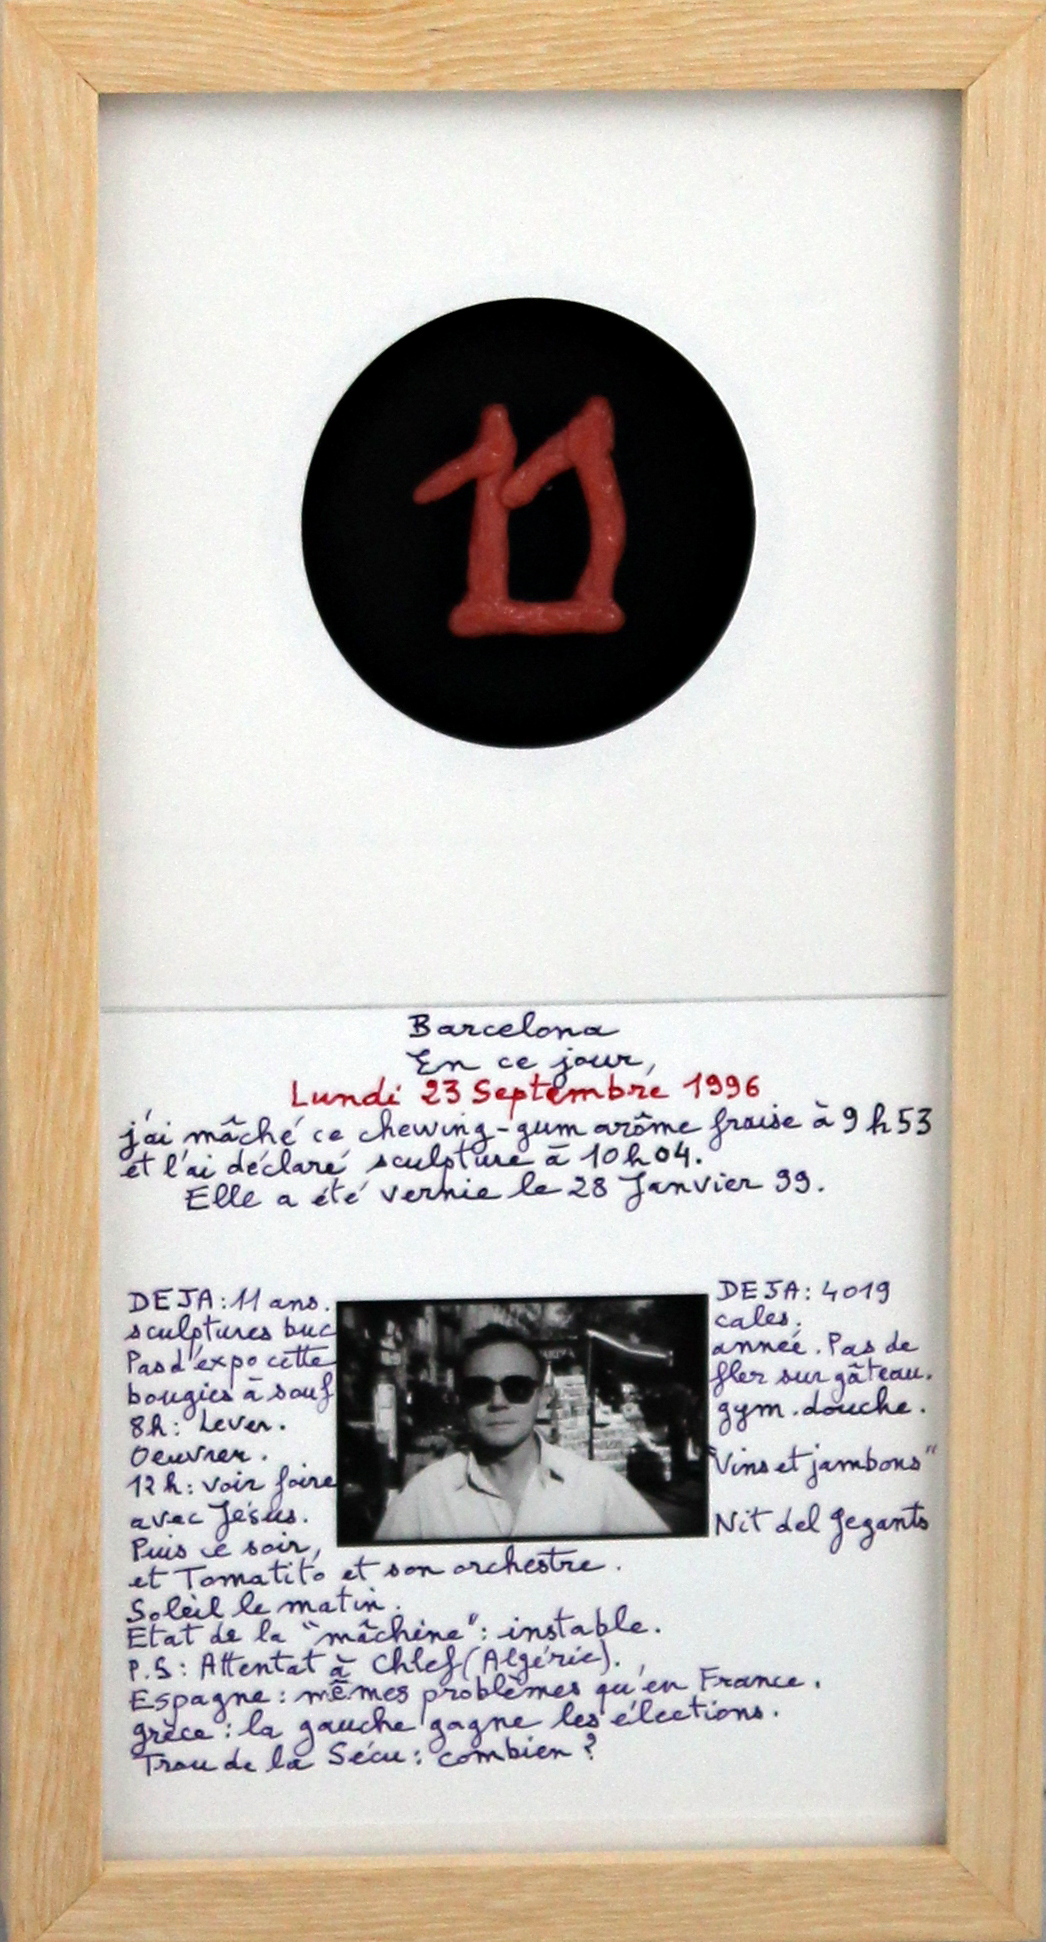 11
Barcelona
En ce jour,
Lundi 23 Septembre 1996
j'ai mâché ce chewing-gum arôme fraise à 9h53
et l'ai déclaré sculpture à 10h04.
Elle a été vernie le 28 Janvier 99.
DEJA: 11 ans. DEJA: 4019
sculptures buccales.
Pas d'expo cette année. Pas de
bougies à souffler sur gâteau.
8h: Lever. gym. douche.
Oeuvrer.
12h: voir foire "Vins et jambons"
avec Jésus.
Puis ce soir, Nit del Gegants
et Tomatito et son orchestre.
Soleil le matin.
Etat de la "mâchine": instable.
P.S: Attentat à Chlef (Algérie).
Espagne: mêmes problèmes qu'en France.
Grèce: la gauche gagne les élections.
Trou de la Sécu: combien?